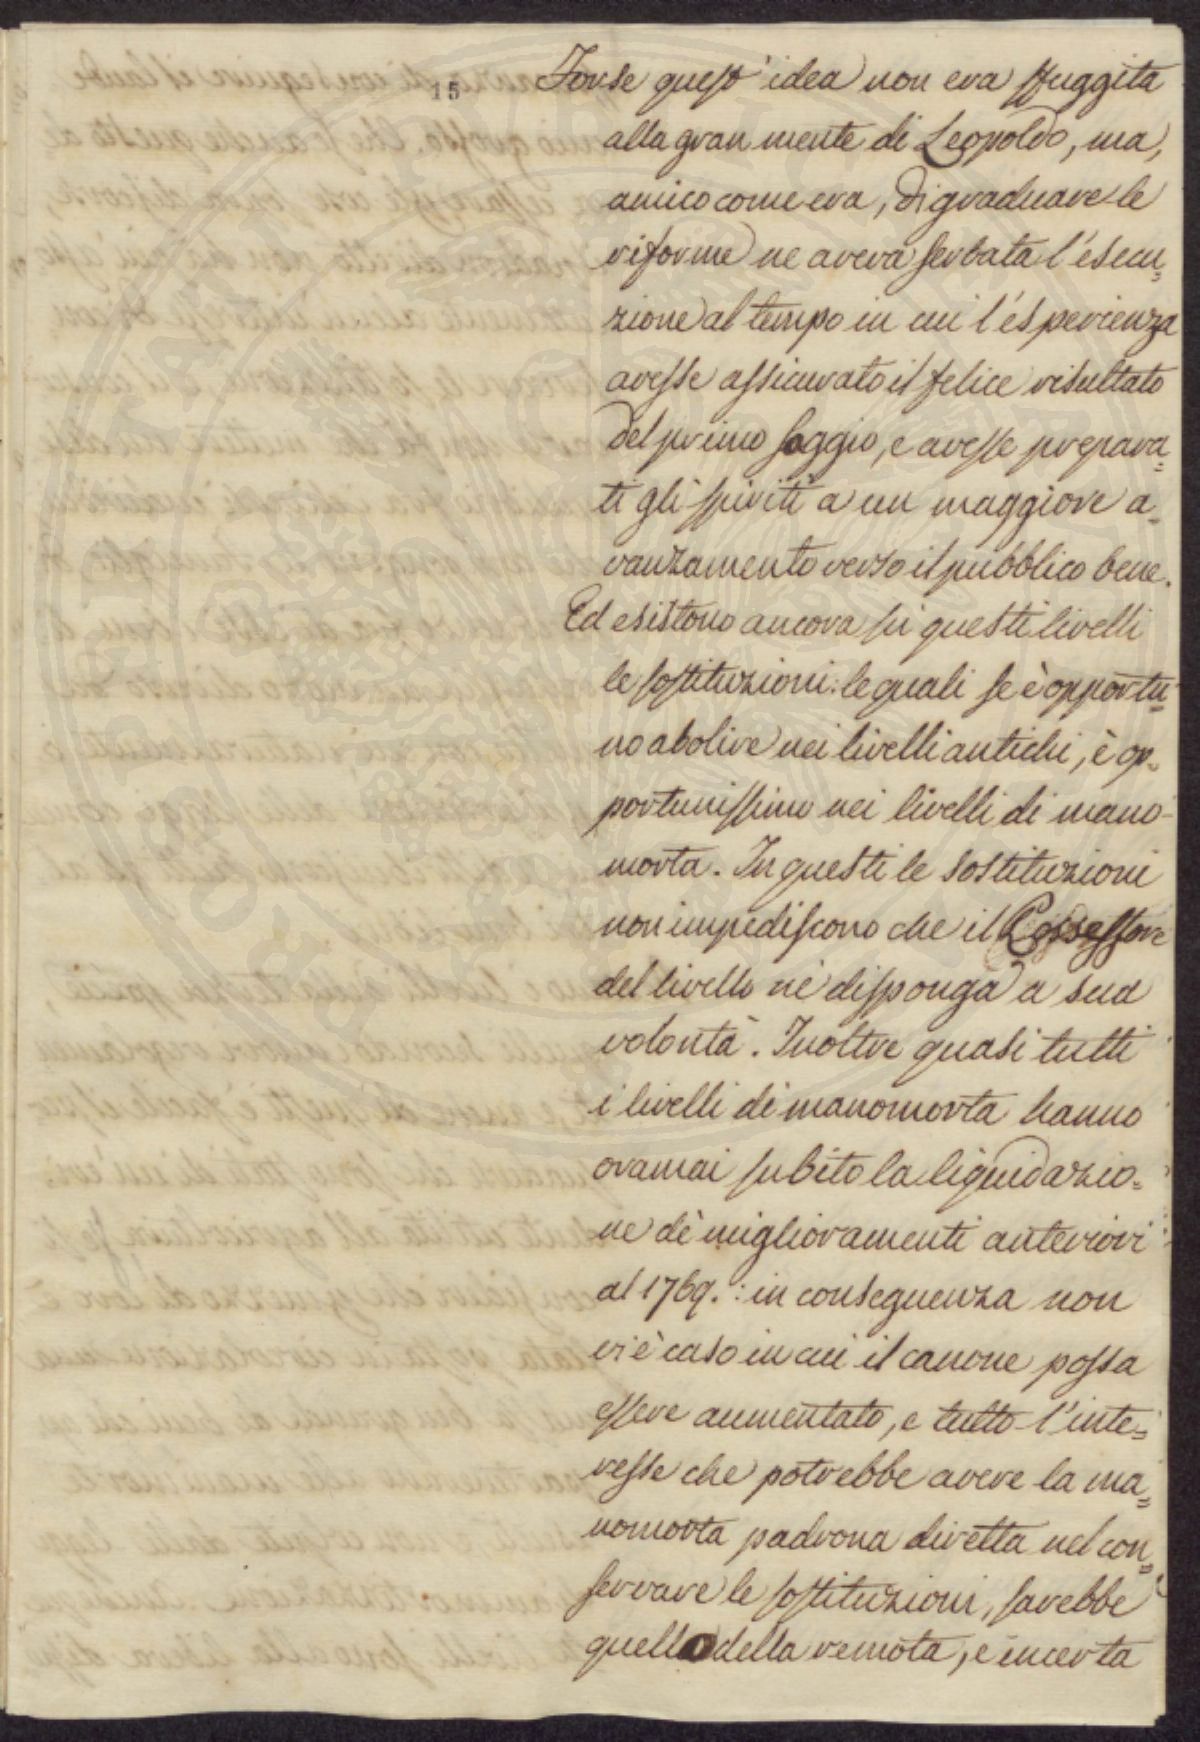 15
Forse quest'idea non era sfuggita
alla gran mente di Leopoldo, ma,
amico come era, di graduare le
riforme ne aveva serbata l'esecu=
zione al tempo in cui l'esperienza
avesse assicurato il felice risultato
del primo saggio, e avesse prepara=
ti gli spiriti a un maggiore a=
vanzamento verso il pubblico bene.
Ed esistono ancora su questi livelli
le sostituzioni: le quali se è opportu=
no abolire nei livelli antichi, è op=
portunissimo nei livelli di mano-
morta. In questi le sostituzioni
non impediscono che il Possessore
del livello ne disponga a sua
volontà. Inoltre quasi tutti
i livelli di manomorta hanno
oramai subito la liquidazio=
ne de' miglioramenti anteriori
al 1769.: in conseguenza non
vi è caso in cui il canone possa
essere aumentato, e tutto l'inte=
resse che potrebbe avere la ma=
nomorta padrona diretta nel con=
servare le sostituzioni, sarebbe
quello della remota, e incerta